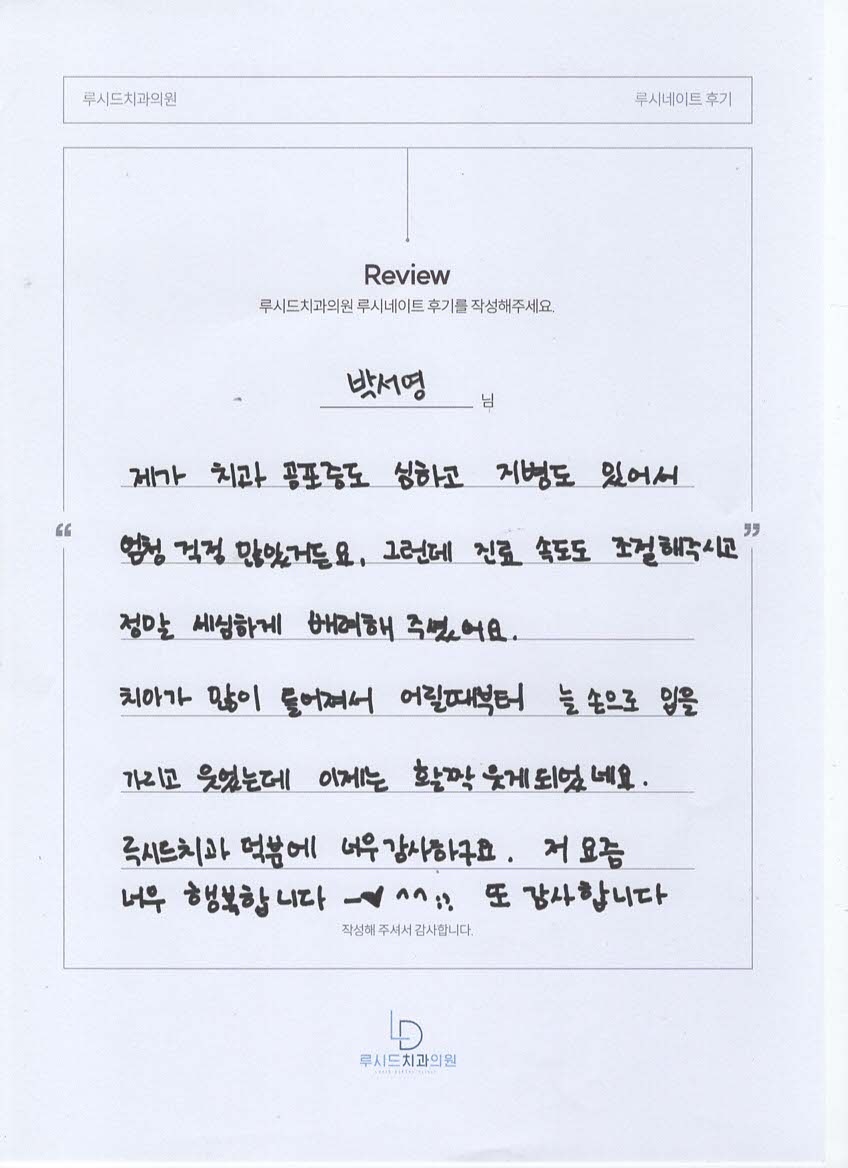 루시드치과의원 루시네이트 후기
Review
루시드치과의원 루시네이트 후기를 작성해주세요.
박서영 님
제가 치과 공포증도 심하고 지병도 있어서
“ 엄청 걱정 많았거든요. 그런데 진료 속도도 조절해주시고 ”
정말 세심하게 배려해 주셨어요.
치아가 많이 틀어져서 어릴때부터 늘 손으로 입을
가리고 웃었는데 이제는 활짝 웃게되었네요.
루시드치과 덕분에 너무 감사하구요. 저 요즘
너무 행복합니다 ~♥ ^^ 또 감사합니다
작성해 주셔서 감사합니다.
LD
루시드치과의원